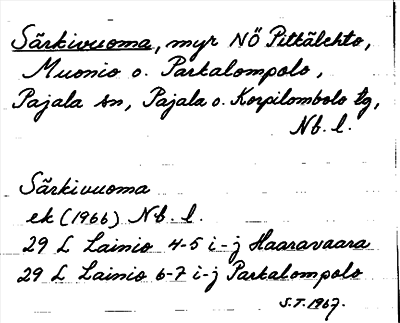 Särkivuoma, myr NÖ Pitkälehto,
Muonio o. Parkalompolo,
Pajala sn, Pajala o. Korpilombolo tg,
Nb. l.
Särkivuoma
ek (1966) Nb. l.
29 L Lainio 4-5 i-j Haaravaara
29 L Lainio 6-7 i-j Parkalompolo
S.T. 1967.